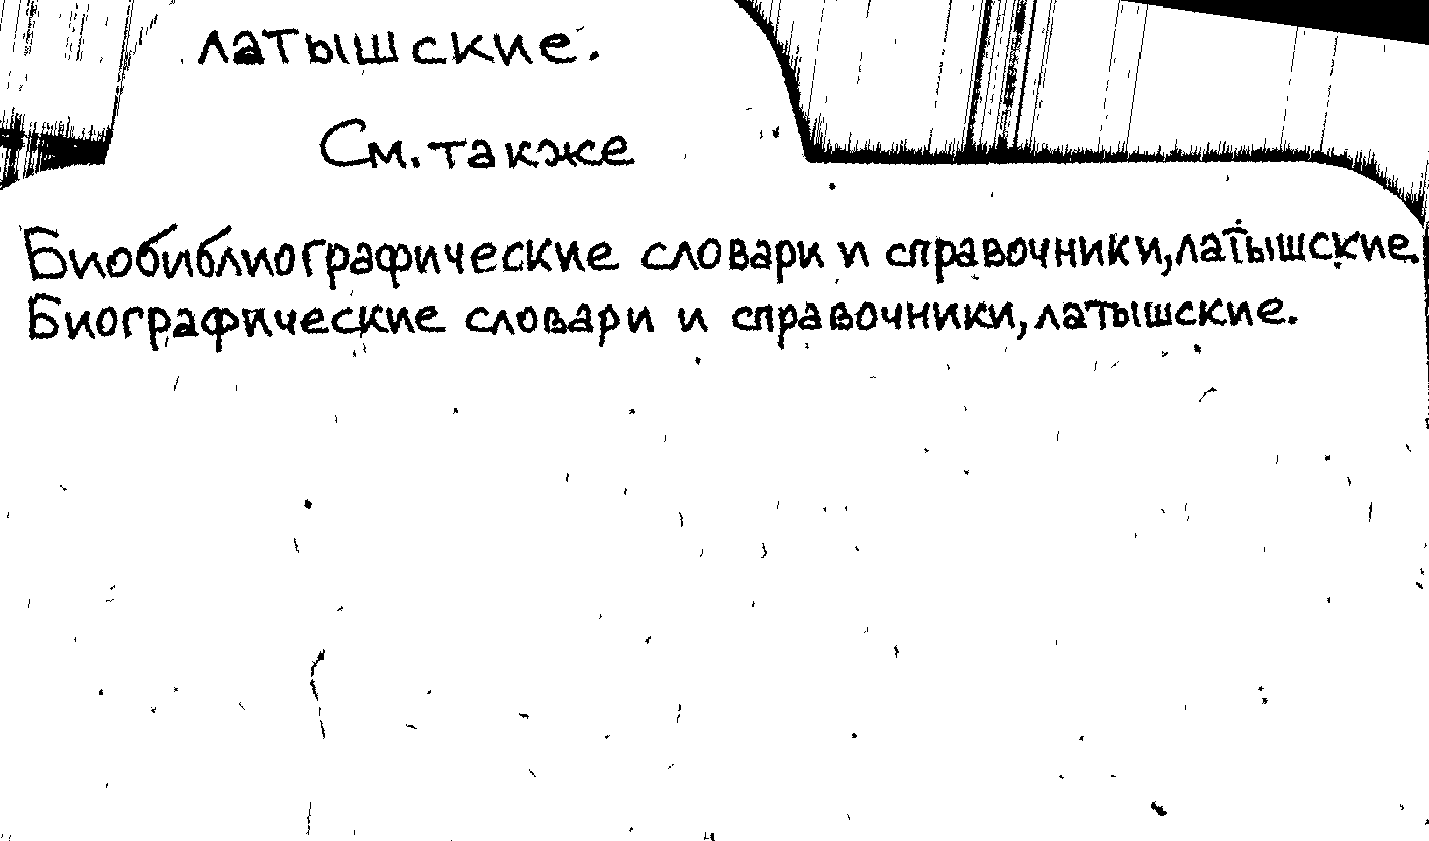 латышские.
См. также
Биобиблиографические словари и справочники, латышские.
Биографические словари и справочники, латышские.